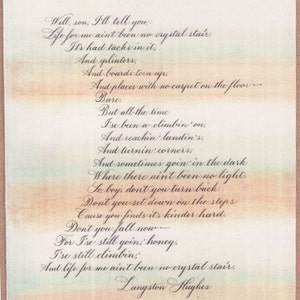 Well, son, I'll tell you
Life for me ain't been no crystal stair.
It's had tacks in it,
And splinters,
And boards torn up,
And places with no carpet on the floor—
Bare.
But all the time
I'se been a climbin' on,
And reachin' landin's,
And turnin' corners,
And sometimes goin' in the dark
Where there ain't been no light.
So boy, don't you turn back
Don't you set down on the steps
'Cause you finds it's kinder hard.
Don't you fall now—
For I'se still goin', honey,
I'se still climbin',
And life for me ain't been no crystal stair.
Langston Hughes